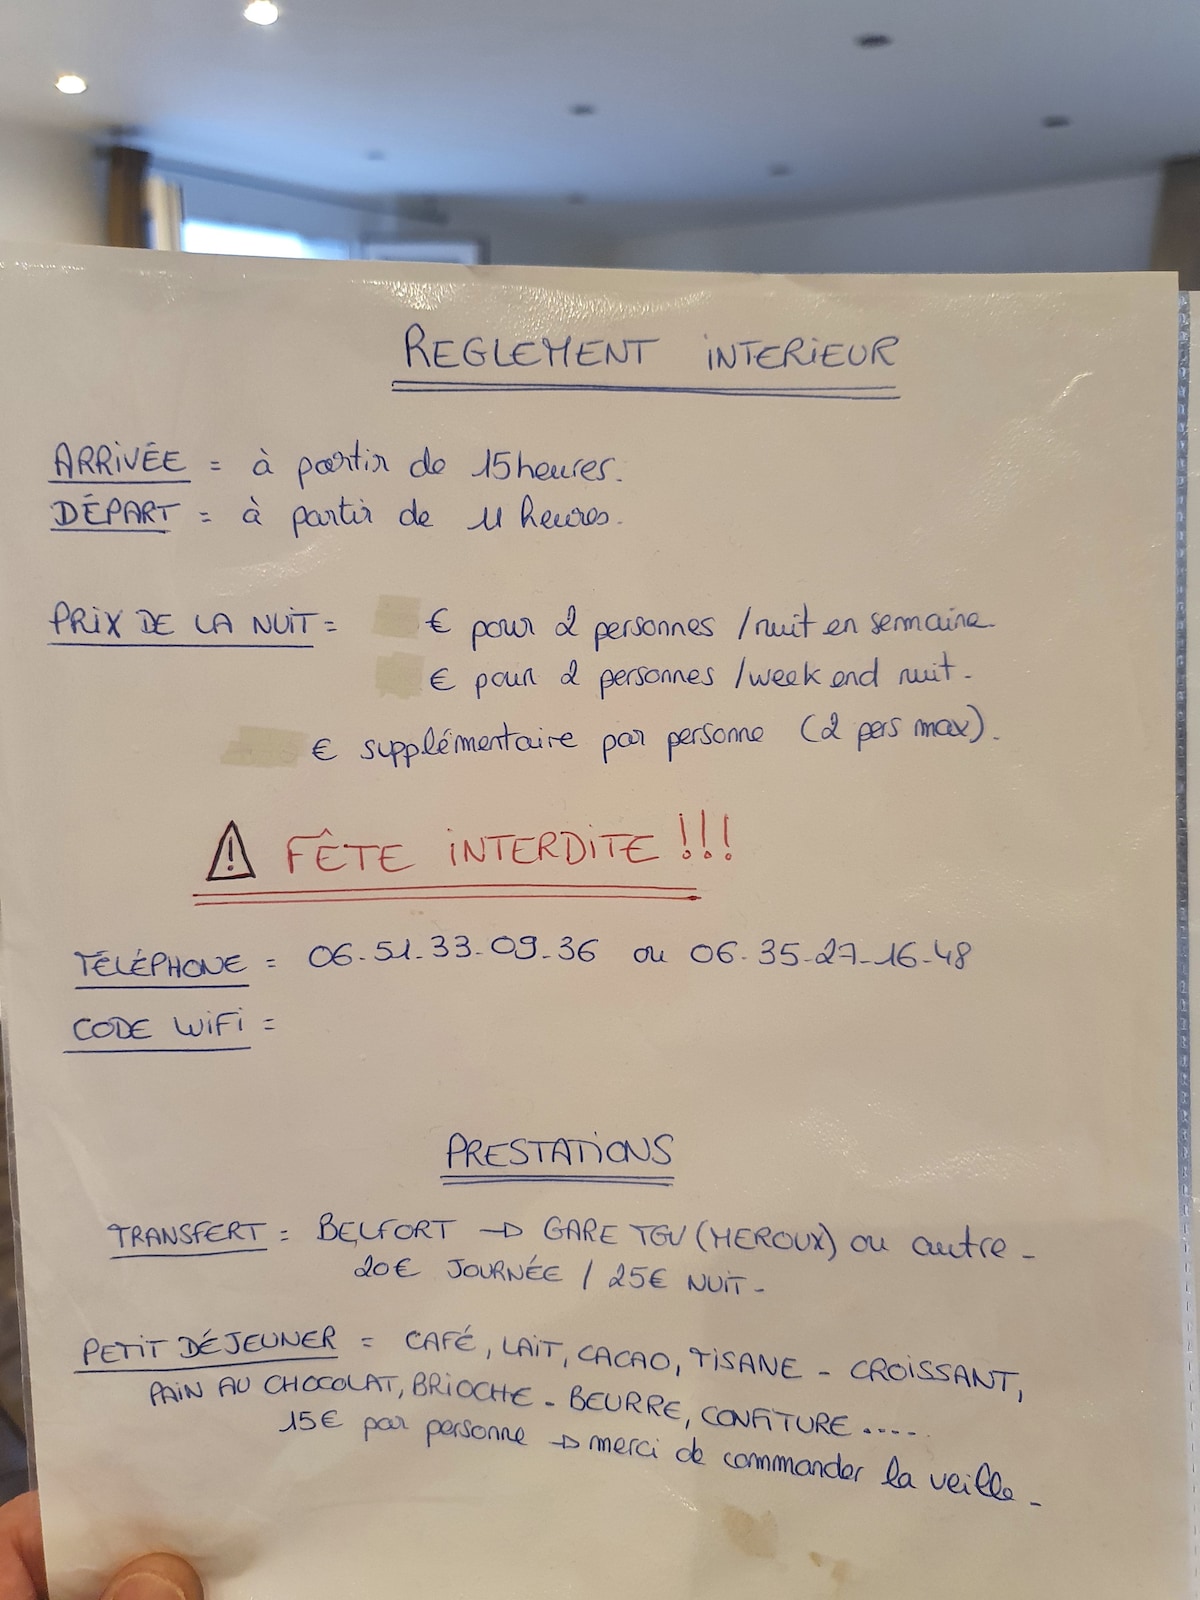 REGLEMENT INTERIEUR
ARRIVÉE = à partir de 15 heures.
DÉPART = à partir de 11 heures.
PRIX DE LA NUIT = € pour 2 personnes / nuit en semaine.
€ pour 2 personnes / week end nuit.
€ supplémentaire par personne (2 pers max).
⚠ FÊTE INTERDITE !!!
TÉLÉPHONE = 06.51.33.09.36 ou 06.35.27.16.48
CODE WIFI =
PRESTATIONS
TRANSFERT = BELFORT → GARE TGV (MEROUX) ou autre -
20€ JOURNÉE / 25€ NUIT -
PETIT DÉJEUNER = CAFÉ, LAIT, CACAO, TISANE - CROISSANT,
PAIN AU CHOCOLAT, BRIOCHE - BEURRE, CONFITURE .....
15€ par personne → merci de commander la veille -